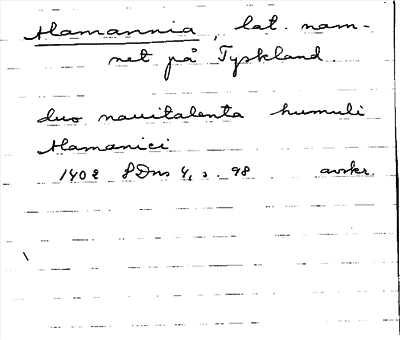 Alamannia, lat. nam-
net på Tyskland.
duo nauitalenta humuli
Alamanici
1402 SDns 4, s. 98 avskr.